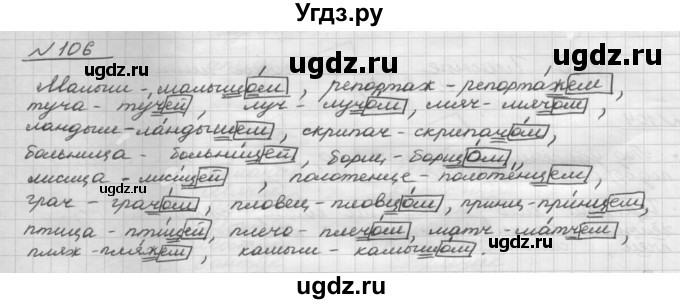 Угдз.ру
№ 106
Малыш - малышо́м, репортаж - репорта́жем,
туча - ту́чей, луч - лучо́м, мяч - мячо́м,
ландыш - ла́ндышем, скрипач - скрипачо́м,
больница - больни́цей, борщ - борщо́м,
лисица - лиси́цей, полотенце - полоте́нцем,
грач - грачо́м, пловец - пловцо́м, принц - при́нцем,
птица - пти́цей, плечо - плечо́м, матч - ма́тчем,
пляж - пля́жем, камыш - камышо́м.
угдз.ру угдз.ру угдз.ру угдз.ру